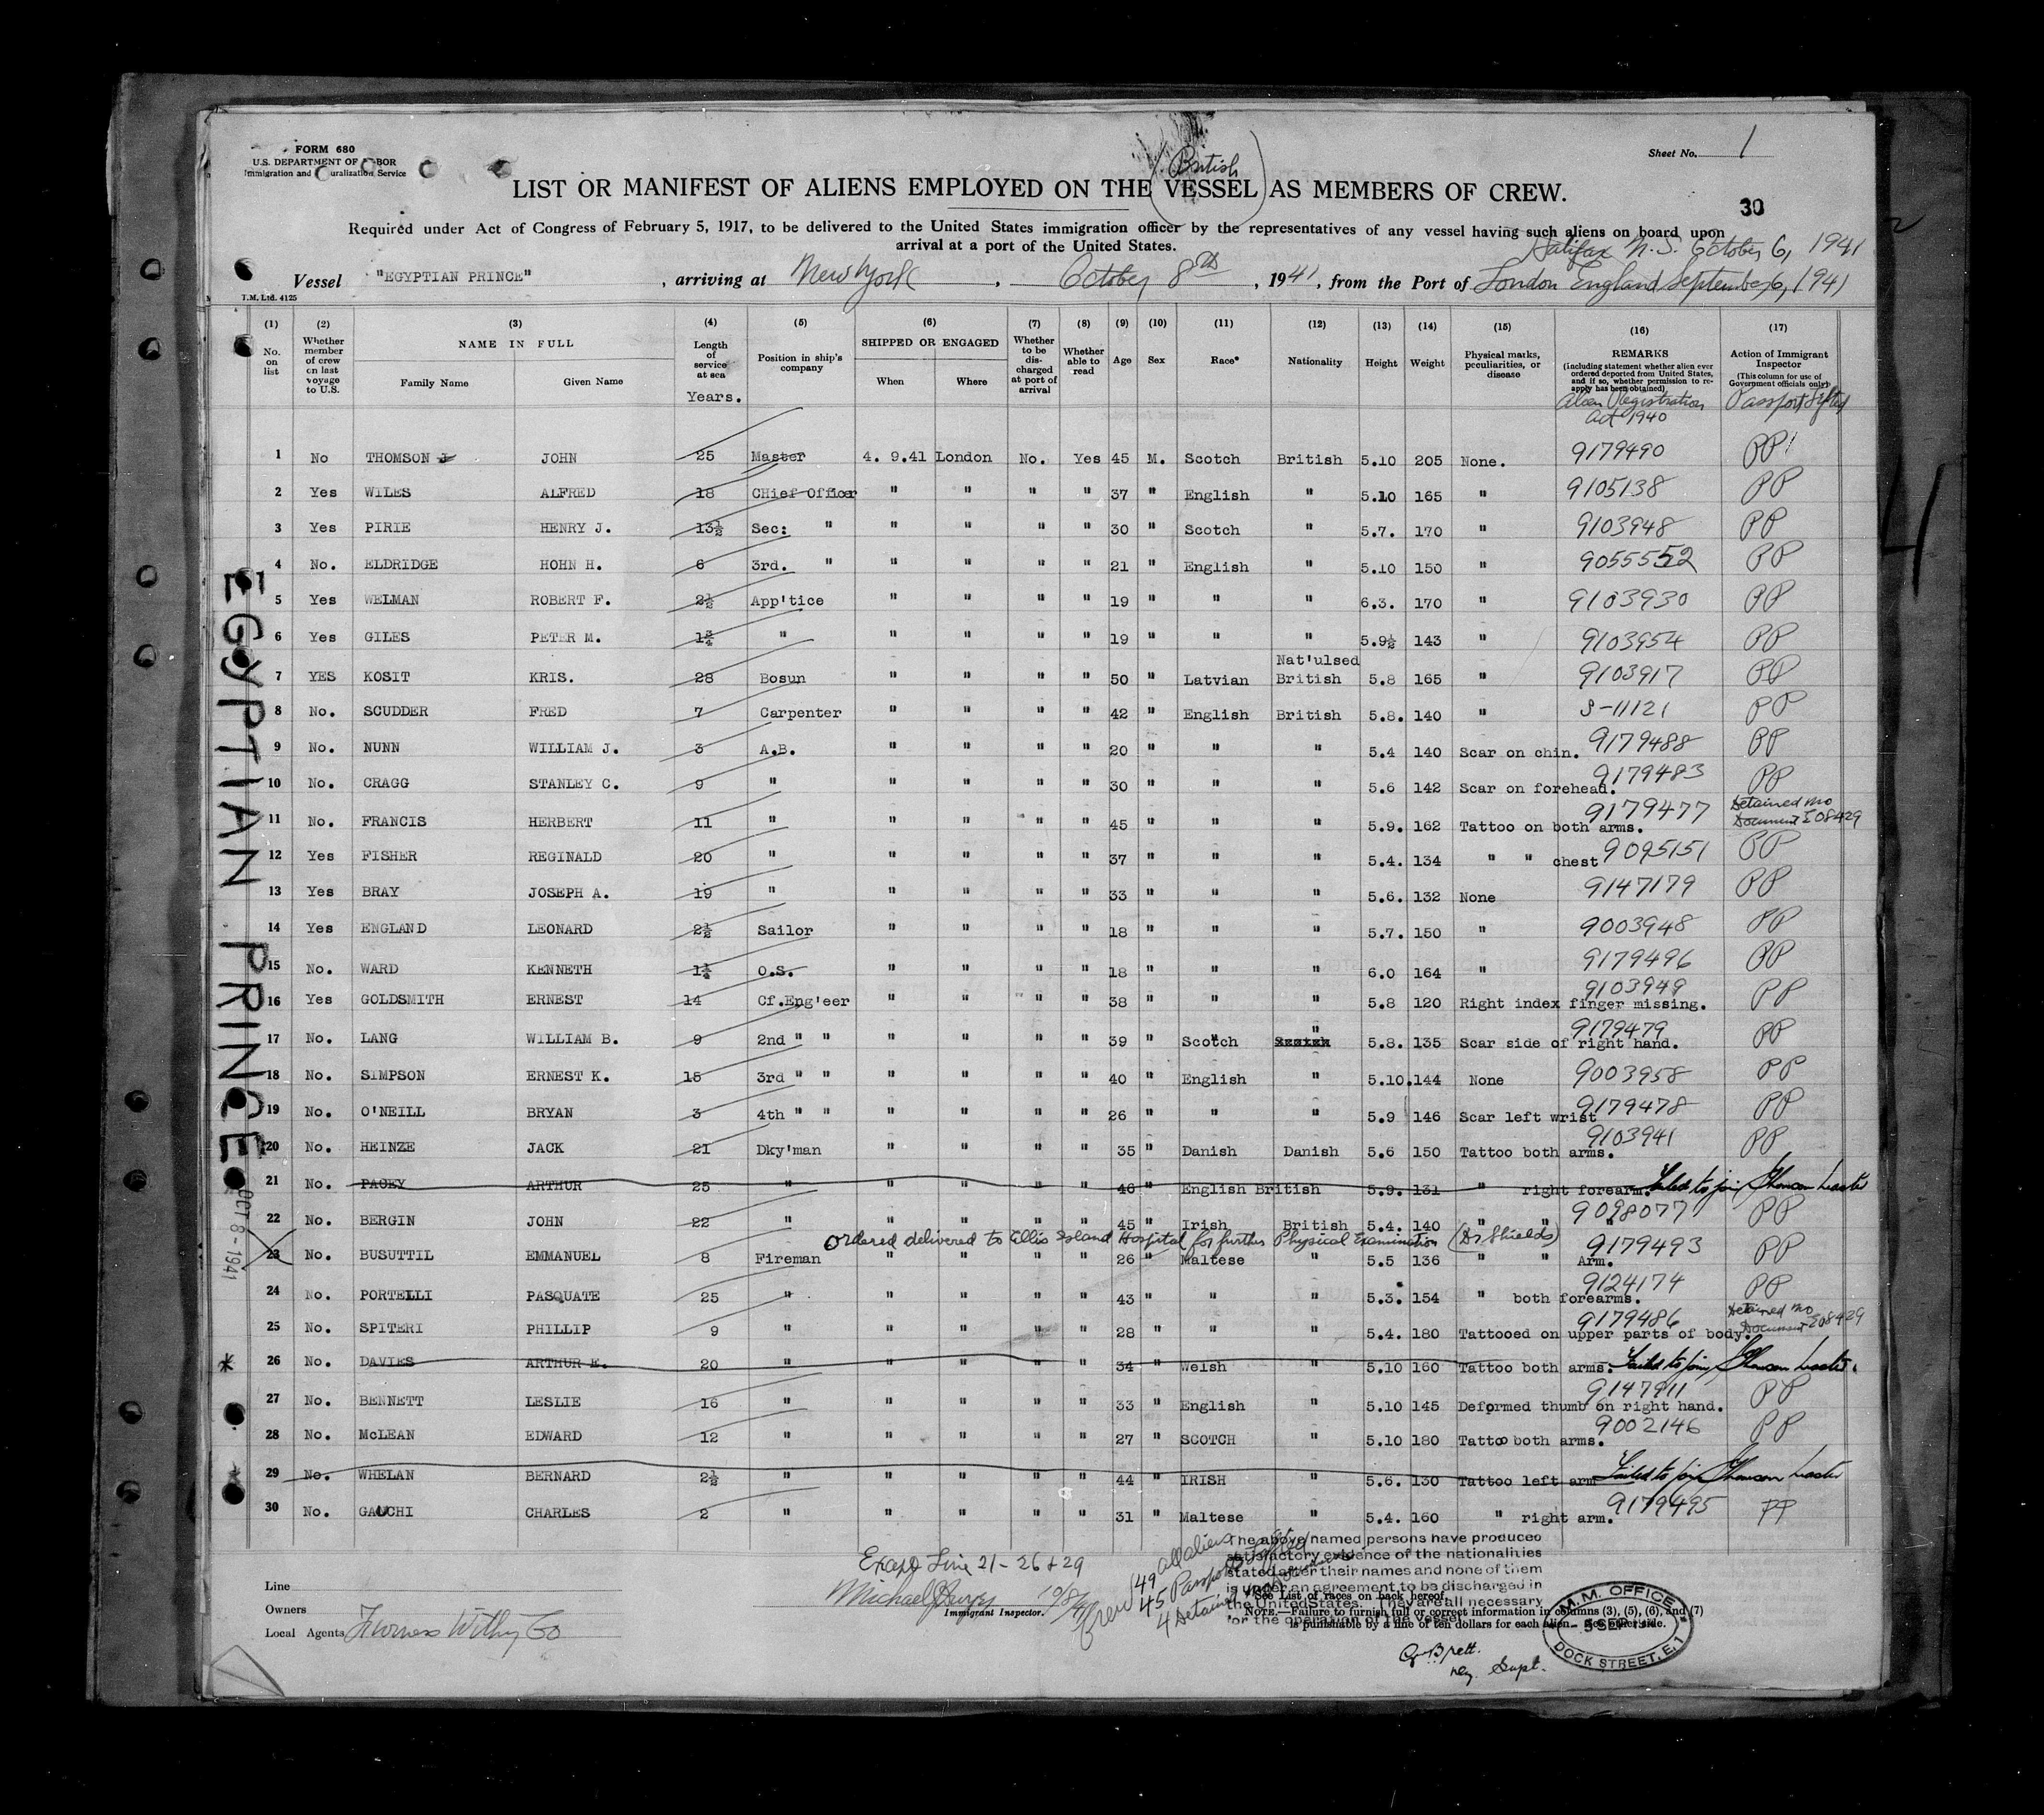 FORM 680
U.S. DEPARTMENT OF LABOR
Immigration and Naturalization Service
Sheet No. 1
(British)
LIST OR MANIFEST OF ALIENS EMPLOYED ON THE VESSEL AS MEMBERS OF CREW.
30
Required under Act of Congress of February 5, 1917, to be delivered to the United States immigration officer by the representatives of any vessel having such aliens on board upon
arrival at a port of the United States.
Halifax N.S. October 6, 1941
Vessel "EGYPTIAN PRINCE", arriving at New York, October 8th, 1941, from the Port of London England September 6, 1941
T.M. Ltd. 4125
(1) (2) (3) (4) (5) (6) (7) (8) (9) (10) (11) (12) (13) (14) (15) (16) (17)
No. on list | Whether member of crew on last voyage to U.S. | NAME IN FULL Family Name Given Name | Length of service at sea Years. | Position in ship's company | SHIPPED OR ENGAGED When Where | Whether to be discharged at port of arrival | Whether able to read | Age | Sex | Race* | Nationality | Height | Weight | Physical marks, peculiarities, or disease | REMARKS (including statement whether alien ever ordered deported from United States, and if so, whether permission to reapply has been obtained) Alien Registration Act 1940 | Action of Immigrant Inspector (This column for use of Government officials only) Passport
1 No THOMSON J JOHN 25 Master 4. 9.41 London No. Yes 45 M. Scotch British 5.10 205 None. 9179490 PP
2 Yes WILES ALFRED 18 CHief Officer " " " " 37 " English " 5.10 165 " 9105138 PP
3 Yes PIRIE HENRY J. 13½ Sec: " " " " " 30 " Scotch " 5.7. 170 " 9103948 PP
4 No. ELDRIDGE HOHN H. 6 3rd. " " " " " 21 " English " 5.10 150 " 9055552 PP
5 Yes WELMAN ROBERT F. 2½ App'tice " " " " 19 " " " 6.3. 170 " 9103930 PP
6 Yes GILES PETER M. 1¾ " " " " " 19 " " " 5.9½ 143 " 9103954 PP
7 YES KOSIT KRIS. 28 Bosun " " " " 50 " Latvian Nat'ulsed British 5.8 165 " 9103917 PP
8 No. SCUDDER FRED 7 Carpenter " " " " 42 " English British 5.8. 140 " S-11121 PP
9 No. NUNN WILLIAM J. 3 A.B. " " " " 20 " " " 5.4 140 Scar on chin. 9179488 PP
10 No. CRAGG STANLEY C. 9 " " " " " 30 " " " 5.6 142 Scar on forehead. 9179483 PP
11 No. FRANCIS HERBERT 11 " " " " " 45 " " " 5.9. 162 Tattoo on both arms. 9179477 Detained No Document 508429
12 Yes FISHER REGINALD 20 " " " " " 37 " " " 5.4. 134 " " chest 9095151 PP
13 Yes BRAY JOSEPH A. 19 " " " " " 33 " " " 5.6. 132 None 9147179 PP
14 Yes ENGLAND LEONARD 2½ Sailor " " " " 18 " " " 5.7. 150 " 9003948 PP
15 No. WARD KENNETH 1¼ O.S. " " " " 18 " " " 6.0 164 " 9179496 PP
16 Yes GOLDSMITH ERNEST 14 Cf.Eng'eer " " " " 38 " " " 5.8 120 Right index finger missing. 9103949 PP
17 No. LANG WILLIAM B. 9 2nd " " " " " " 39 " Scotch " 5.8. 135 Scar side of right hand. 9179479 PP
18 No. SIMPSON ERNEST K. 15 3rd " " " " " " 40 " English " 5.10. 144 None 9003958 PP
19 No. O'NEILL BRYAN 3 4th " " " " " " 26 " " " 5.9 146 Scar left wrist 9179478 PP
20 No. HEINZE JACK 21 Dky'man " " " " 35 " Danish Danish 5.6 150 Tattoo both arms. 9103941 PP
21 No. PACEY ARTHUR 25 " " " " " 46 " English British 5.9. 131 " right forearm. Failed to join Thomson Master
22 No. BERGIN JOHN 22 " " " " " 45 " Irish British 5.4. 140 " " " 9098077 PP
Ordered delivered to Ellis Island Hospital for further Physical Examination (Dr Shields)
23 No. BUSUTTIL EMMANUEL 8 Fireman " " " " 26 " Maltese " 5.5 136 " " Arm. 9179493 PP
24 No. PORTELLI PASQUATE 25 " " " " " 43 " " " 5.3. 154 " both forearms. 9124174 PP
25 No. SPITERI PHILLIP 9 " " " " " 28 " " " 5.4. 180 Tattooed on upper parts of body. 9179486 Detained No Document 508429
* 26 No. DAVIES ARTHUR E. 20 " " " " " 34 " Welsh " 5.10 160 Tattoo both arms. Failed to join Thomson Master.
27 No. BENNETT LESLIE 16 " " " " " 33 " English " 5.10 145 Deformed thumb on right hand. 9147911 PP
28 No. McLEAN EDWARD 12 " " " " " 27 " SCOTCH " 5.10 180 Tattoo both arms. 9002146 PP
29 No. WHELAN BERNARD 2½ " " " " " 44 " IRISH " 5.6. 130 Tattoo left arm Failed to join Thomson Master
30 No. GAUCHI CHARLES 2 " " " " " 31 " Maltese " 5.4. 160 " right arm. 9179495 PP
EGYPTIAN PRINCE
OCT 8 - 1941
Except Line 21 - 26 & 29
10/8/41
Immigrant Inspector.
Crew 49 all aliens
45 Passports
4 Detained
The above named persons have produced
satisfactory evidence of the nationalities
stated after their names and none of them
is under an agreement to be discharged in
the United States. They are all necessary
for the operation of the vessel
* See List of races on back hereof.
NOTE.—Failure to furnish full or correct information in columns (3), (5), (6), and (7)
is punishable by a fine of ten dollars for each alien. See other side.
Line
Owners
Local Agents Furness Withy Co
M.M. OFFICE
5 SEP 1941
DOCK STREET, E.1
Brett.
Supt.